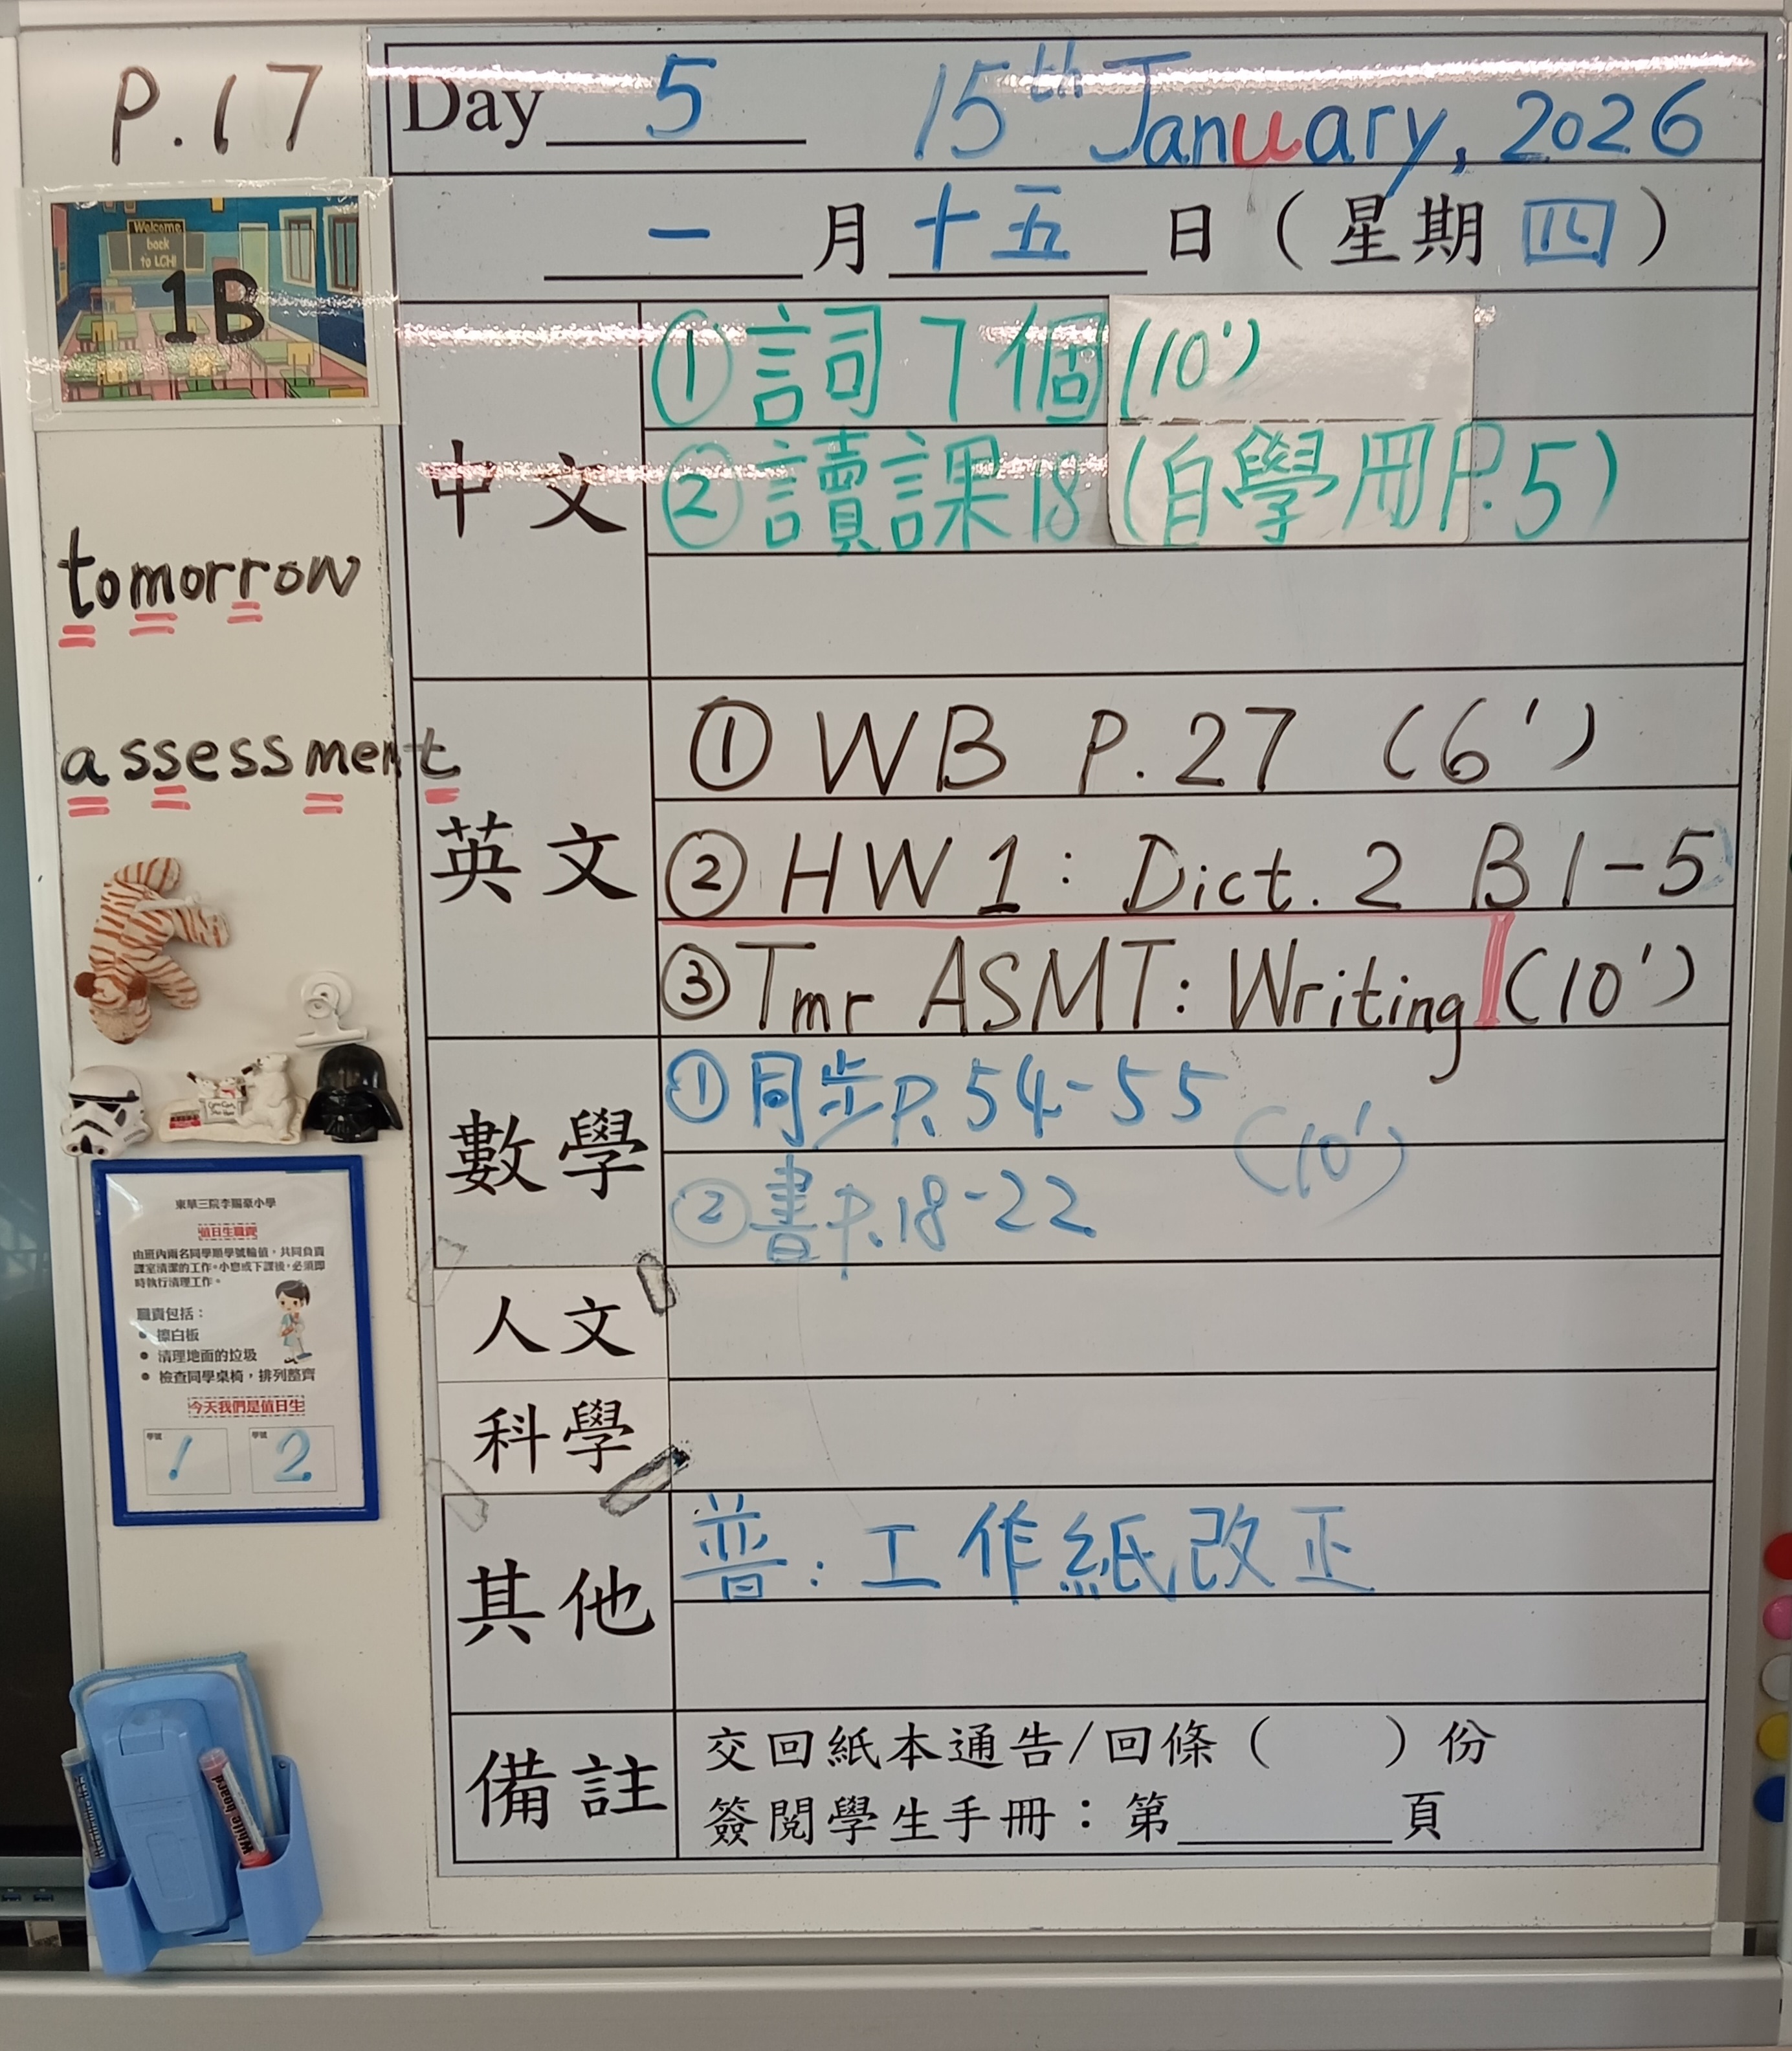 P.17
Day 5 15th January, 2026
一月十五日（星期四）
Welcome
back
to LCH!
1B
中文
①詞7個(10')
②讀課18(自學冊P.5)
tomorrow
assessment
英文
① WB P.27 (6')
② HW 1: Dict. 2 B1-5
③ Tmr ASMT: Writing (10')
數學
①同步P.54-55
(10')
②書P.18-22
人文
科學
其他
普：工作紙改正
備註
交回紙本通告/回條（ ）份
簽閱學生手冊：第____頁
東華三院李賜豪小學
值日生職責
由班內兩名同學順學號輪值，共同負責
課室清潔的工作。小息或下課後，必須即
時執行清理工作。
職責包括：
• 擦白板
• 清理地面的垃圾
• 檢查同學桌椅，排列整齊
今天我們是值日生
學號 1 學號 2
White board